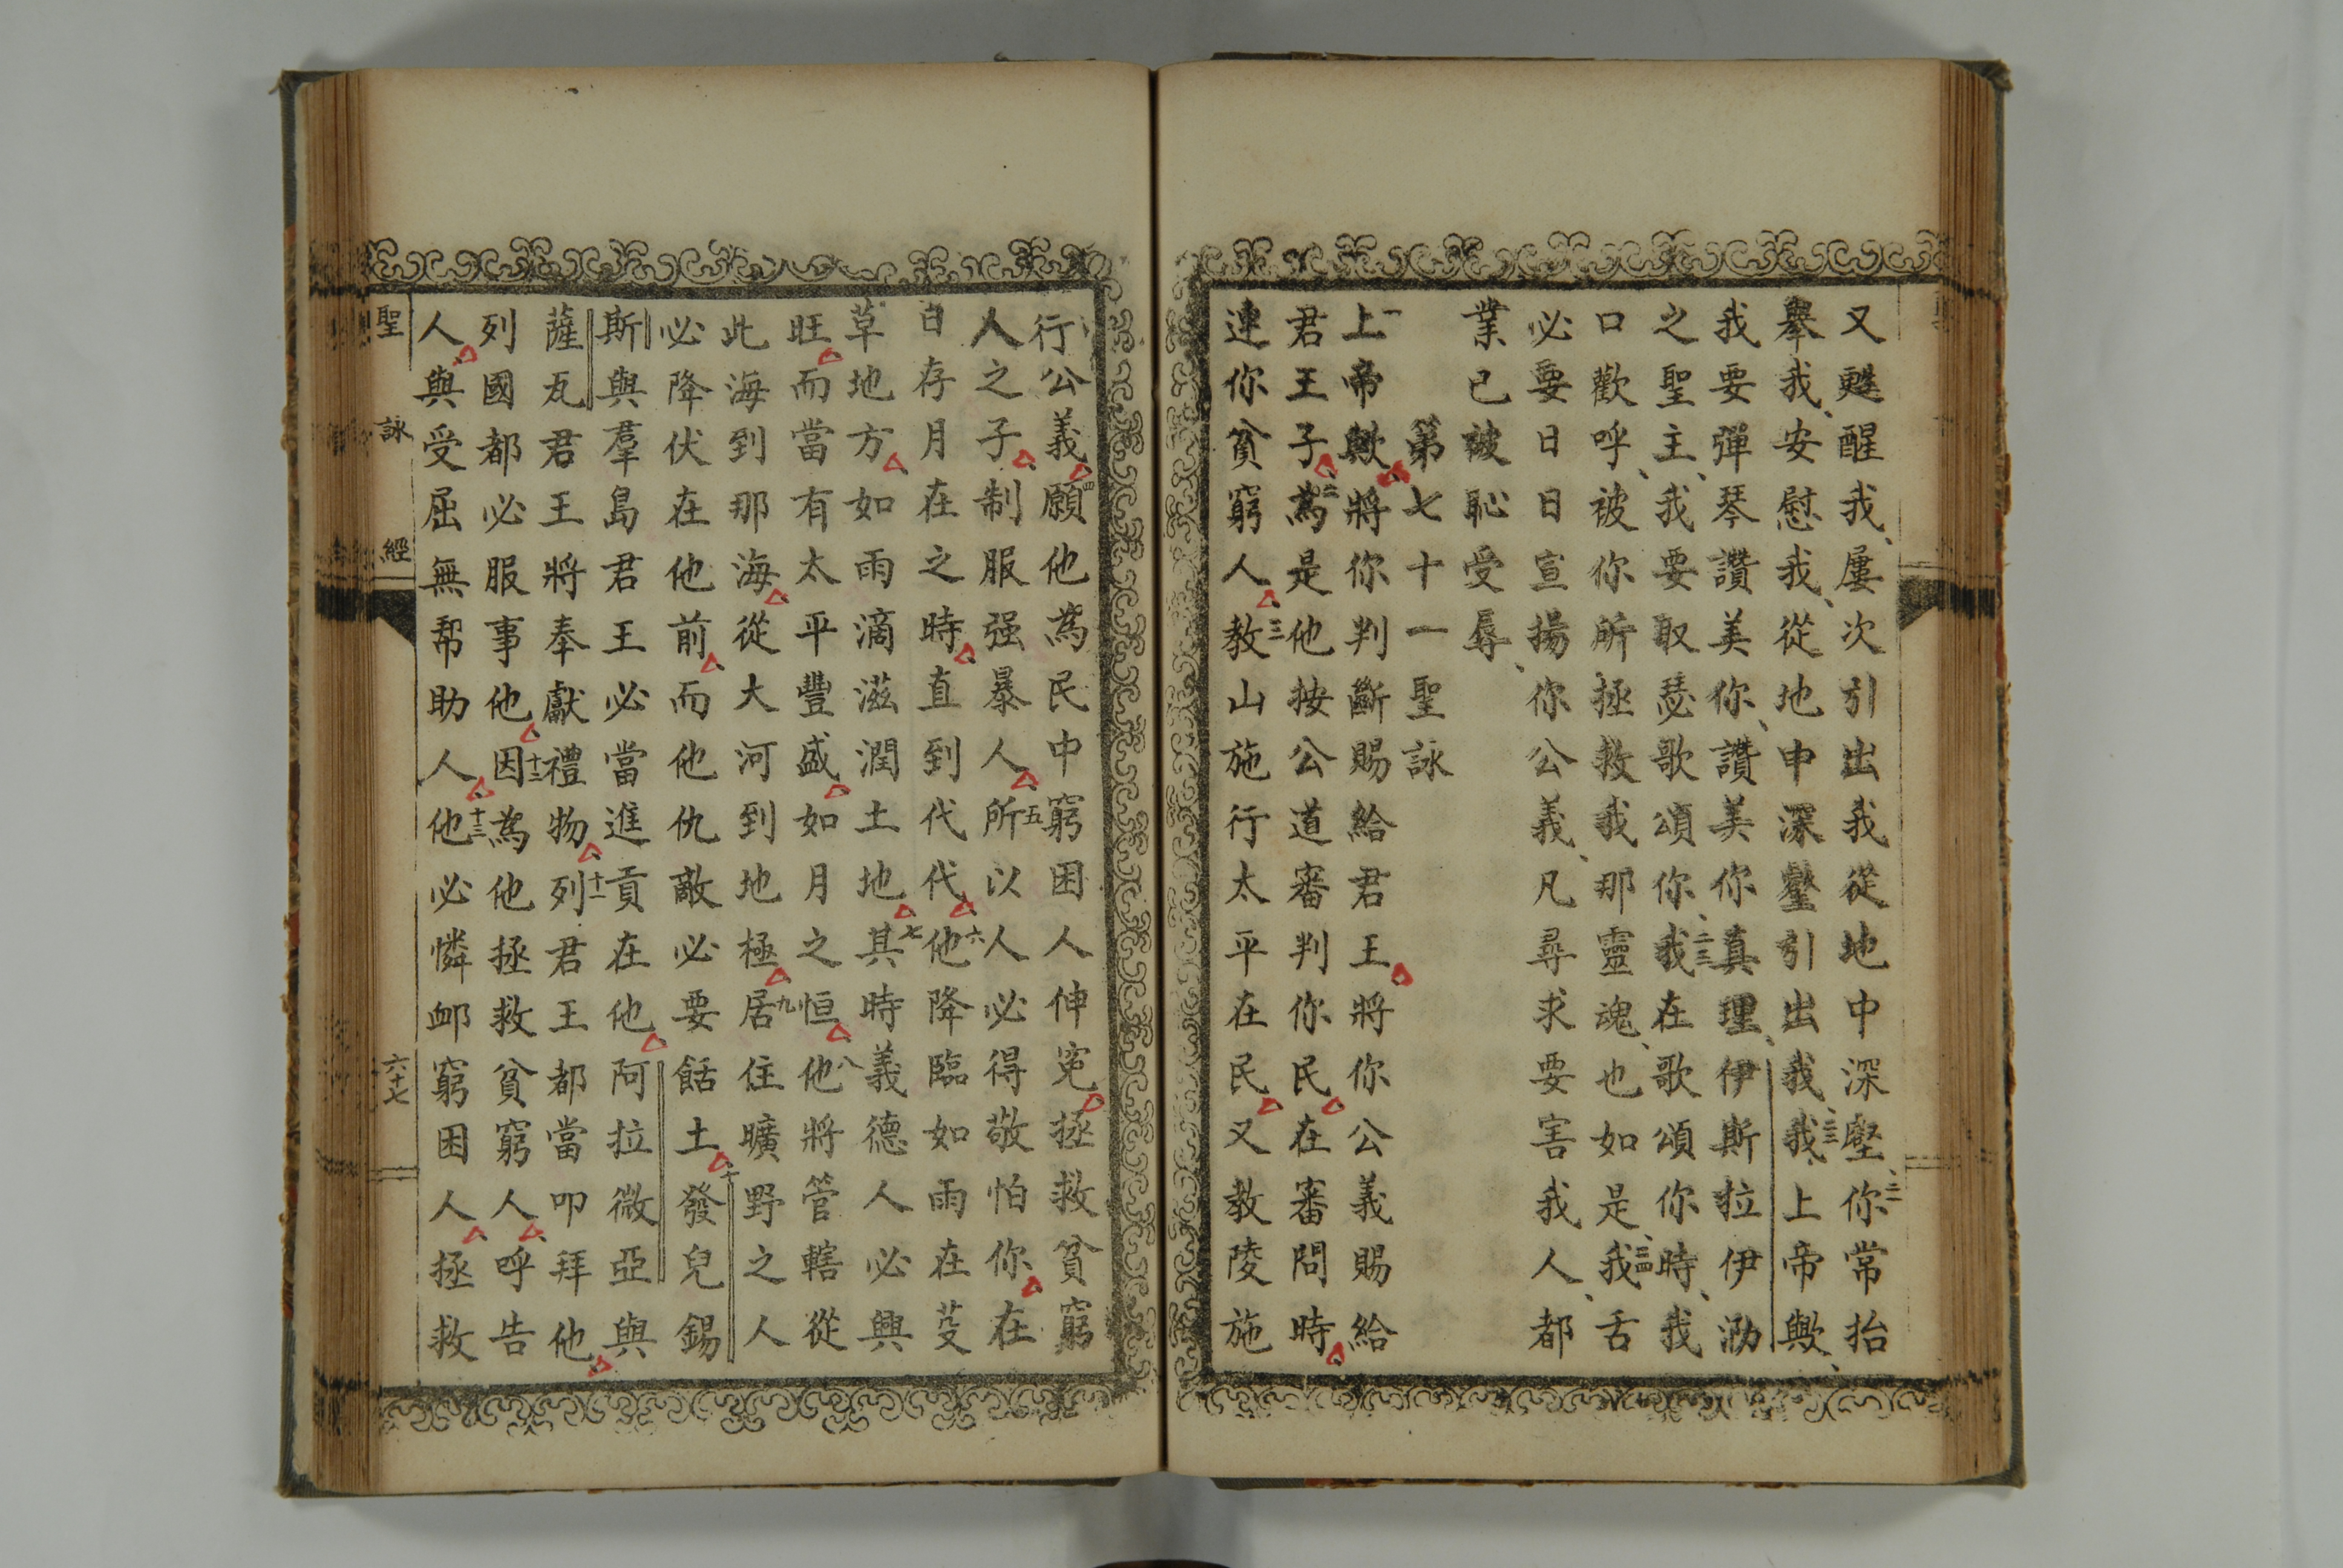 又甦醒我、屢次引出我從地中深壑、二一你常抬
舉我、安慰我、從地中深壑引出我、二二我上帝歟、
我要彈琴讚美你、讚美你真理、伊斯拉伊泐
之聖主、我要取瑟歌頌你、二三我在歌頌你時、我
口歡呼、被你所拯救我那靈魂、也如是、二四我舌
必要日日宣揚你公義、凡尋求要害我人、都
業已被恥受辱、
第七十一聖詠
一上帝歟將你判斷賜給君王將你公義賜給
君王子二為是他按公道審判你民在審問時
連你貧窮人三教山施行太平在民又教陵施
行公義四願他為民中窮困人伸寃拯救貧窮
人之子制服强暴人五所以人必得敬怕你在
日存月在之時直到代代六他降臨如雨在芟
草地方如雨滴滋潤土地七其時義德人必興
旺而當有太平豐盛如月之恒八他將管轄從
此海到那海從大河到地極九居住曠野之人
必降伏在他前而他仇敵必要餂土十發兒錫
斯與羣島君王必當進貢在他阿拉微亞與
薩瓦君王將奉獻禮物十一列君王都當叩拜他
列國都必服事他十二因為他拯救貧窮人呼告
人與受屈無幇助人十三他必憐卹窮困人拯救
聖詠經 六十七